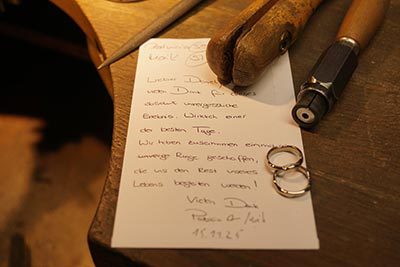 Lieber Daniel
vielen Dank für dieses
absolut unvergessliche
Erlebnis. Wirklich einer
der besten Tage.
Wir haben zusammen einmalige
Ringe geschaffen,
die uns den Rest unseres
Lebens begleiten werden!
Vielen Dank